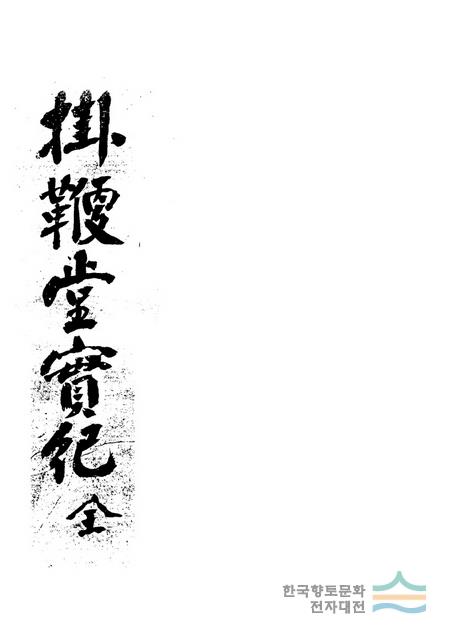 掛鞭堂實紀 全
한국향토문화
전자대전